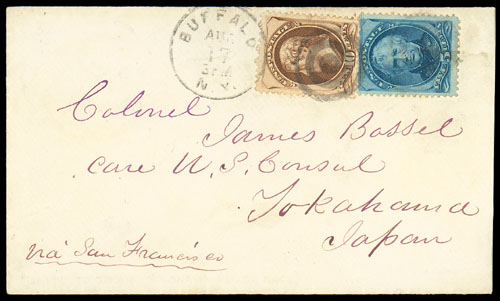 BUFFALO
AU
N.Y.
Colonel
James Bossel
care U.S. Consul
Yokahama
Japan
via San Francisco